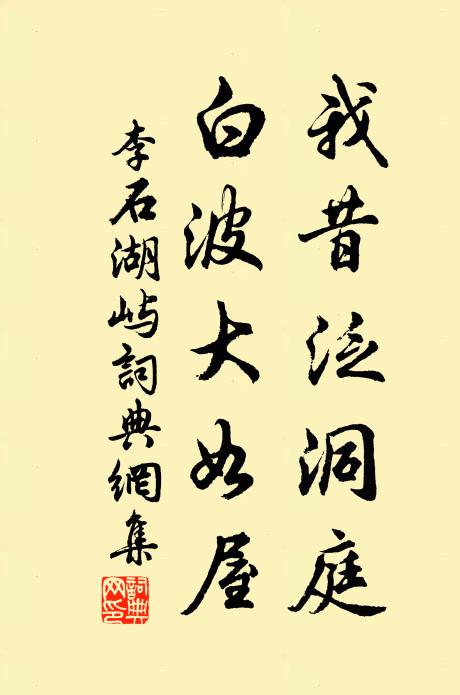 我昔泛洞庭
白波大如屋
李石湖屿詞典網集
詞典网印